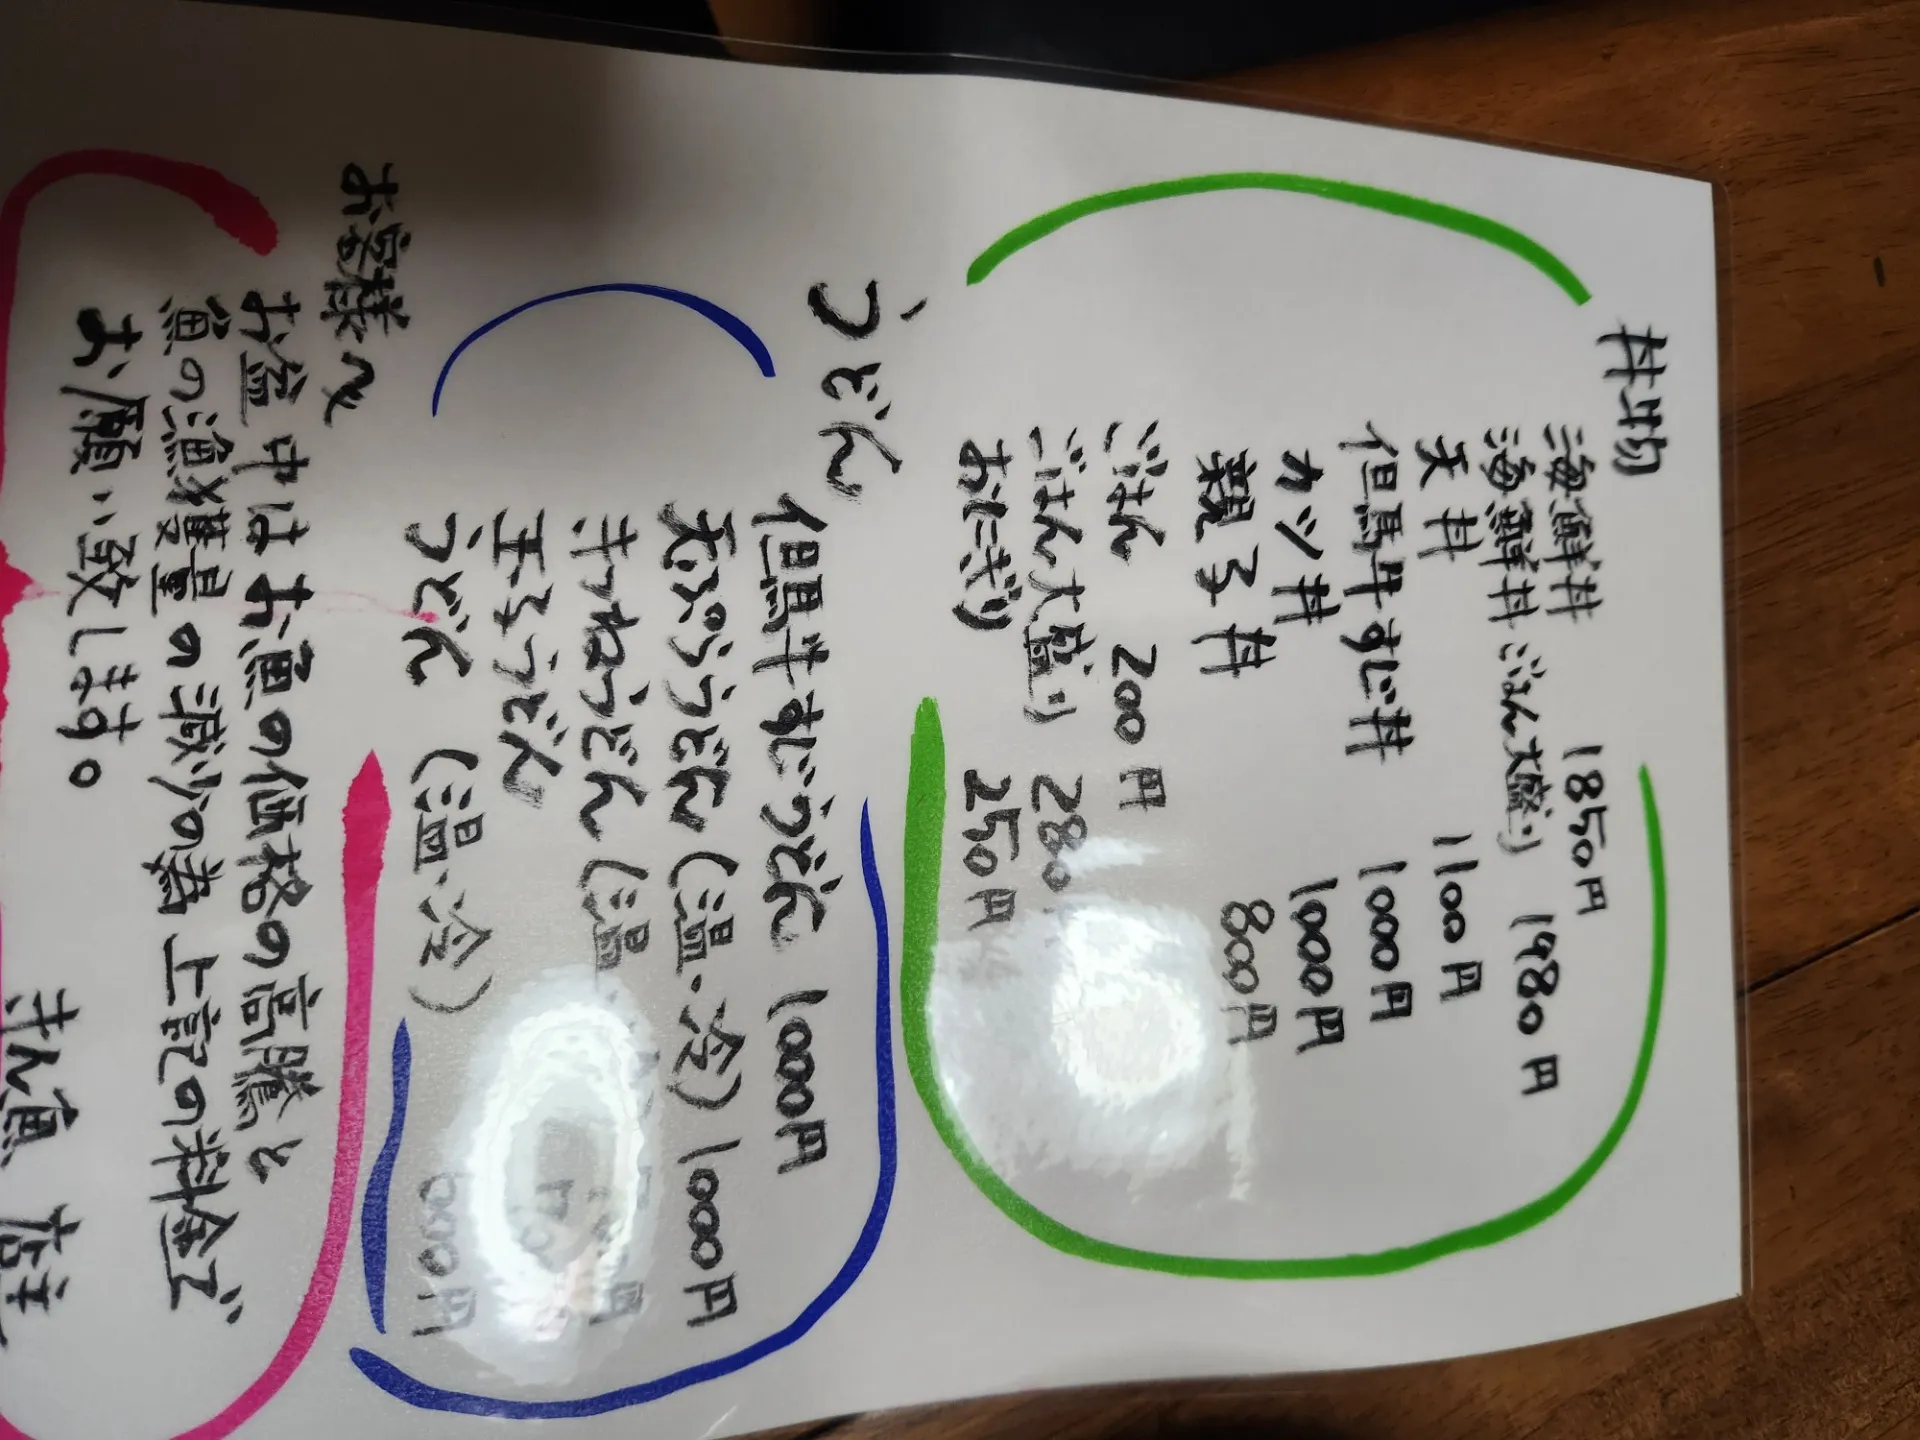 丼物
海鮮丼 1850円
海鮮丼 ごはん大盛り 1980円
天丼 1100円
但馬牛すじ丼 1000円
カツ丼 1000円
親子丼 800円
ごはん 200円
ごはん大盛り 280
おにぎり 250円
うどん
但馬牛すじうどん 1000円
天ぷらうどん(温・冷) 1000円
きつねうどん(温
玉子うどん
うどん (温・冷)
お客様へ
お盆中はお魚の価格の高騰と
魚の漁獲量の減少の為上記の料金で
お願い致します。
店主